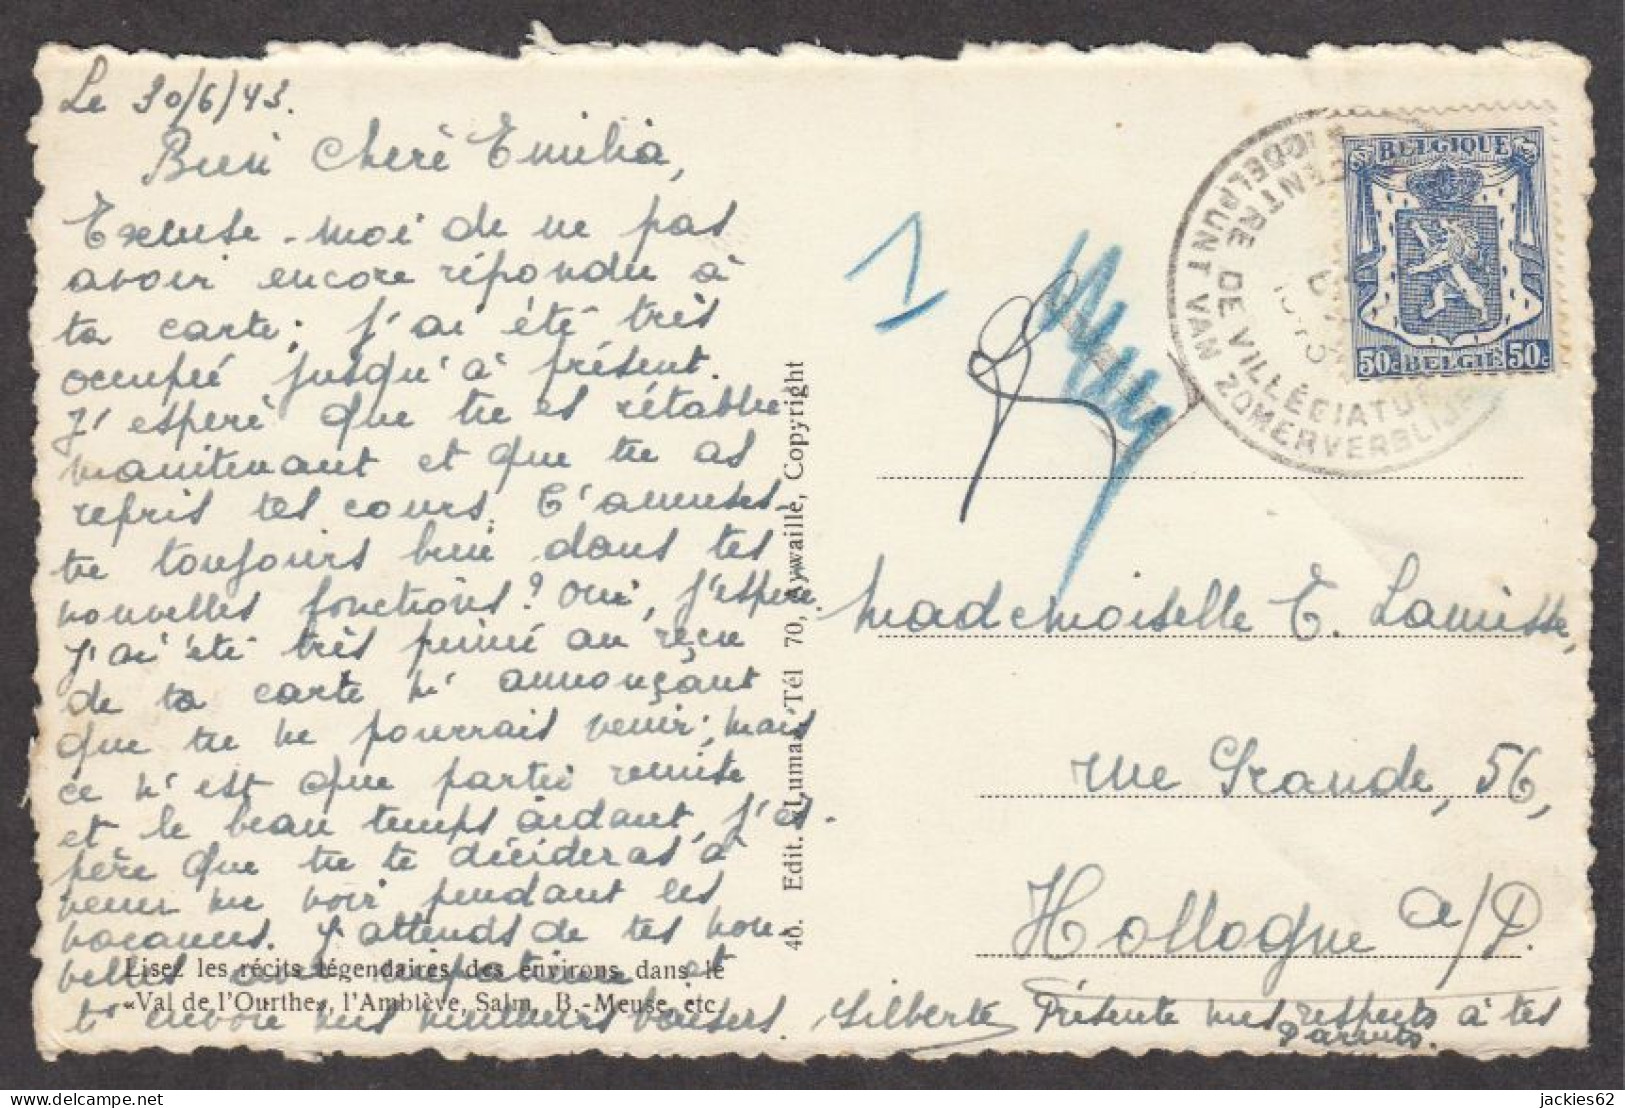 Le 30/6/43.
Bien Chère Emilia,
Excuse-moi de ne pas
avoir encore répondu à
ta carte; j'ai été très
occupée jusqu'à présent.
J'espère que tu es rétablie
maintenant et que tu as
repris tes cours. T'amuses
tu toujours bien dans tes
nouvelles fonctions? Oui, j'espère.
J'ai été très peiné au reçu
de ta carte m'annonçant
que tu ne pourrais venir; mais
ce n'est que partie remise
et le beau temps aidant, j'es-
père que tu te décideras à
venir me voir pendant les
vacances. J'attends de tes nou-
velles avec impatience et
t'envoie mes meilleurs baisers. Gilberte
Présente mes respects à tes
Parents.
Lisez les récits légendaires des environs dans le
«Val de l'Ourthe», l'Amblève, Salm, B.-Meuse, etc.
46. Edit. Tél 70, Aywaille, Copyright
1
BELGIQUE
50c BELGIE 50c
CENTRE DE VILLÉGIATURE
MIGDELPUNT VAN ZOMERVERBLIJF
Mademoiselle E. Lamisse,
rue Grande, 56,
Hollogne a/P.
jackies62